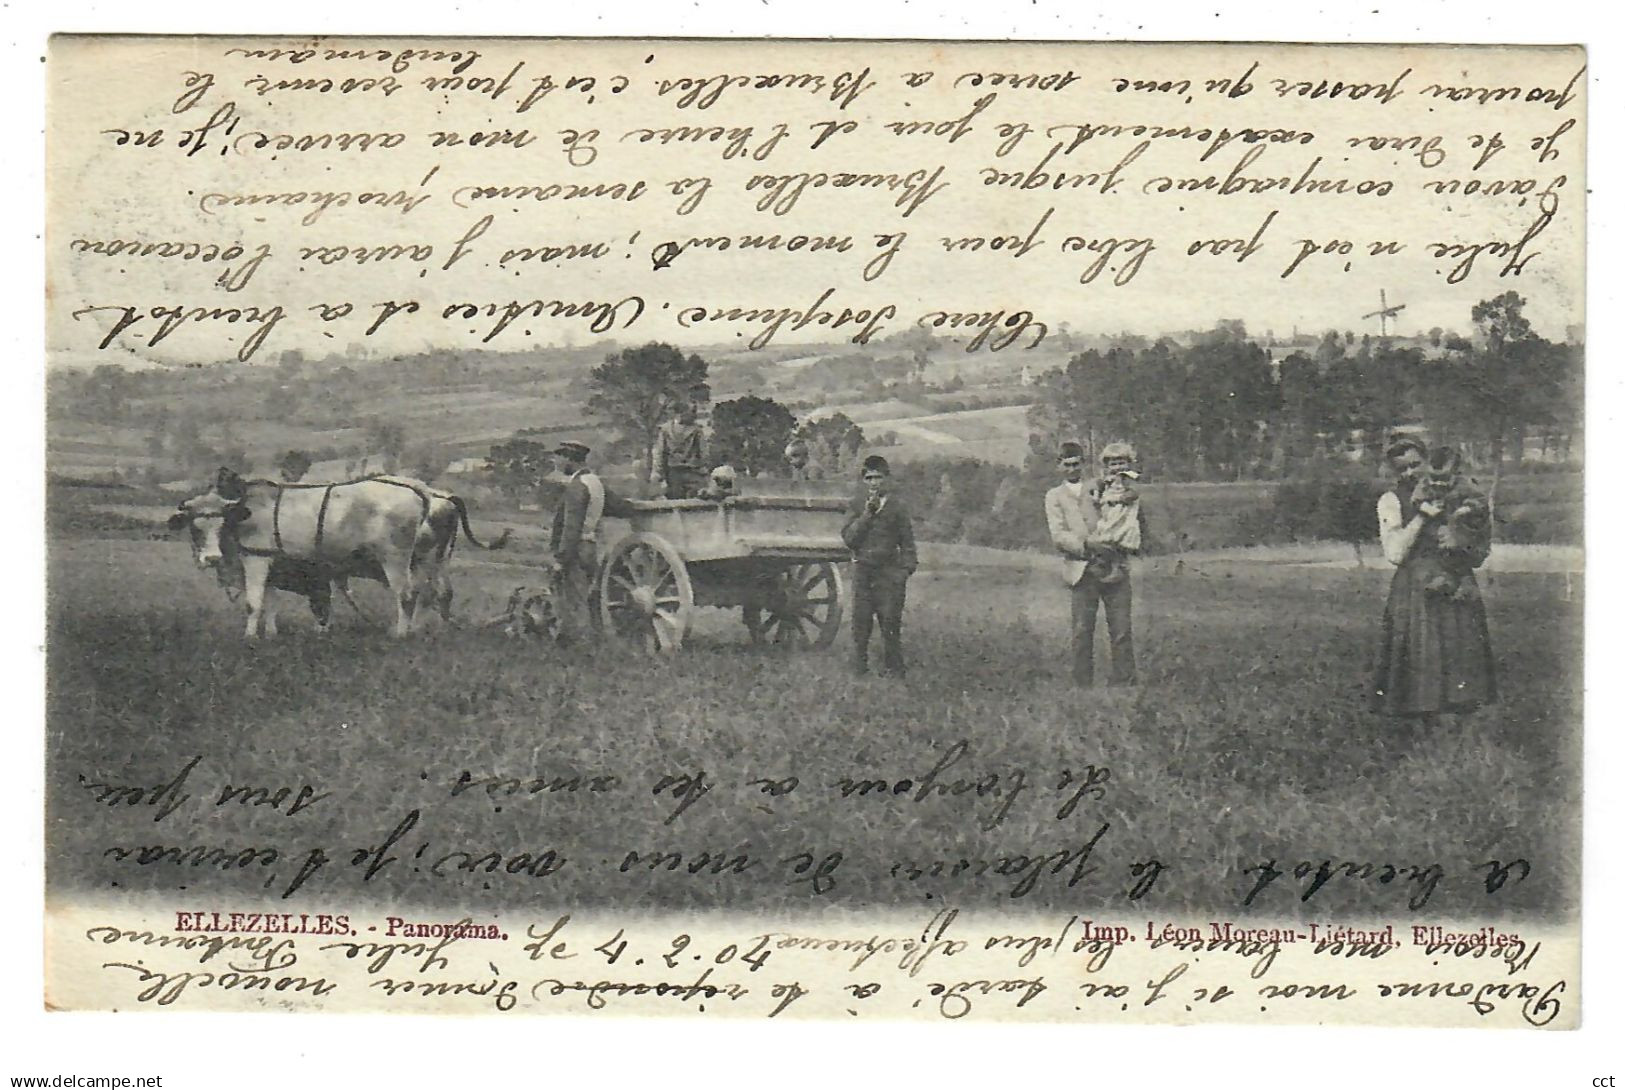 Pardonne moi si j'ai tardé à te répondre donner nouvelle
Reçois mes baisers les plus affectueux Julie Fontaine
A bientot le plaisir de nous voir; je t'écrirai
Le bonjour à tes amies. sous peu
Chère Joséphine. Amitiés et à bientôt
Julie n'est pas libre pour le moment; mais j'aurai l'occasion
d'avoir compagnie jusque Bruxelles la semaine prochaine.
je te dirai exatement le jour et l'heure de mon arrivée; je ne
pourai passer qu'une soirée a Bruxelles, c'est pour revenir le
lendemain
ELLEZELLES. - Panorama.
Imp. Léon Moreau-Liétard, Ellezelles.
www.delcampe.net
cct